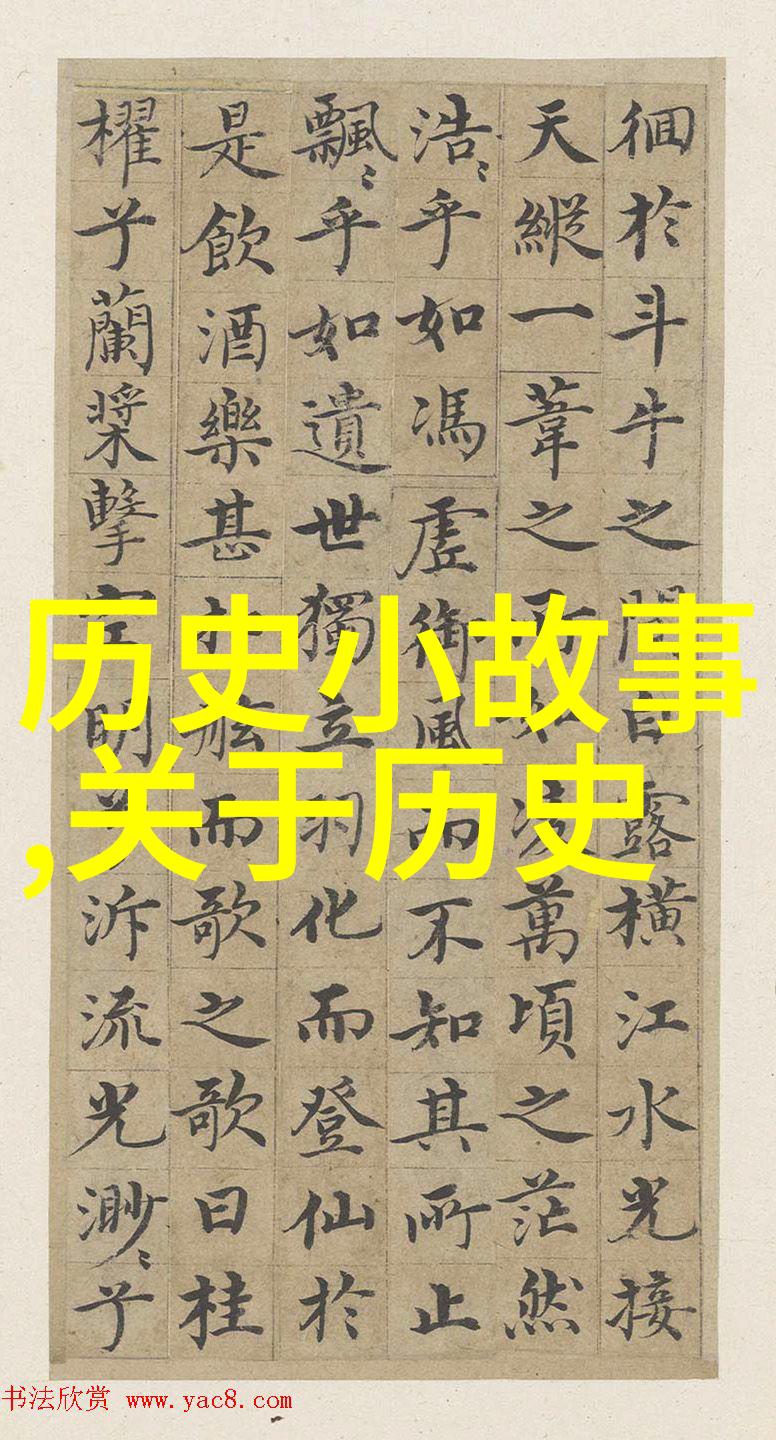 徊於斗牛之間白露橫江水光接
天縱一葦之所如凌萬頃之茫然
浩〻乎如馮虛御風而不知其所止
飄〻乎如遺世獨立羽化而登仙於
是飲酒樂甚扣舷而歌之歌曰桂
櫂兮蘭槳擊空明兮泝流光渺〻兮
历史小故事
,关于历史
书法欣赏 www.yac8.com